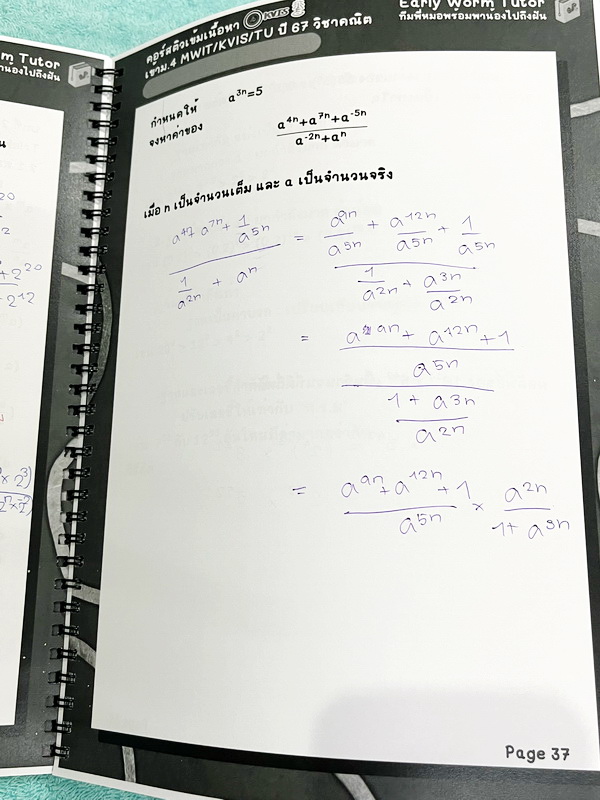 คอร์สติวเข้มเนื้อหา KVIS
เข้าม.4 MWIT/KVIS/TU ปี 67 วิชาคณิต
Early Worm Tutor
ทีมพี่หมอพร้อมพาน้องไปถึงฝัน
กำหนดให้ a^3n=5
จงหาค่าของ (a^4n+a^7n+a^-5n)/(a^-2n+a^n)
เมื่อ n เป็นจำนวนเต็ม และ a เป็นจำนวนจริง
a^7n + 1/a^5n
1/a^2n + a^n
= a^9n/a^5n + a^12n/a^5n + 1/a^5n
1/a^2n + a^3n/a^2n
= a^9n + a^12n + 1
a^5n
1 + a^3n
a^2n
= (a^9n + a^12n + 1)/a^5n × a^2n/(1 + a^3n)
Page 37
m Tutor
าน้องไปถึงฝัน
+ 2^20
2^12
× 2^3)